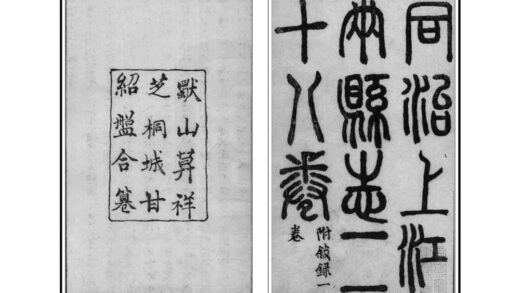 同治上江
兩縣志二
十八卷
附敍錄一
卷
獨山莫祥
芝桐城甘
紹盤合纂